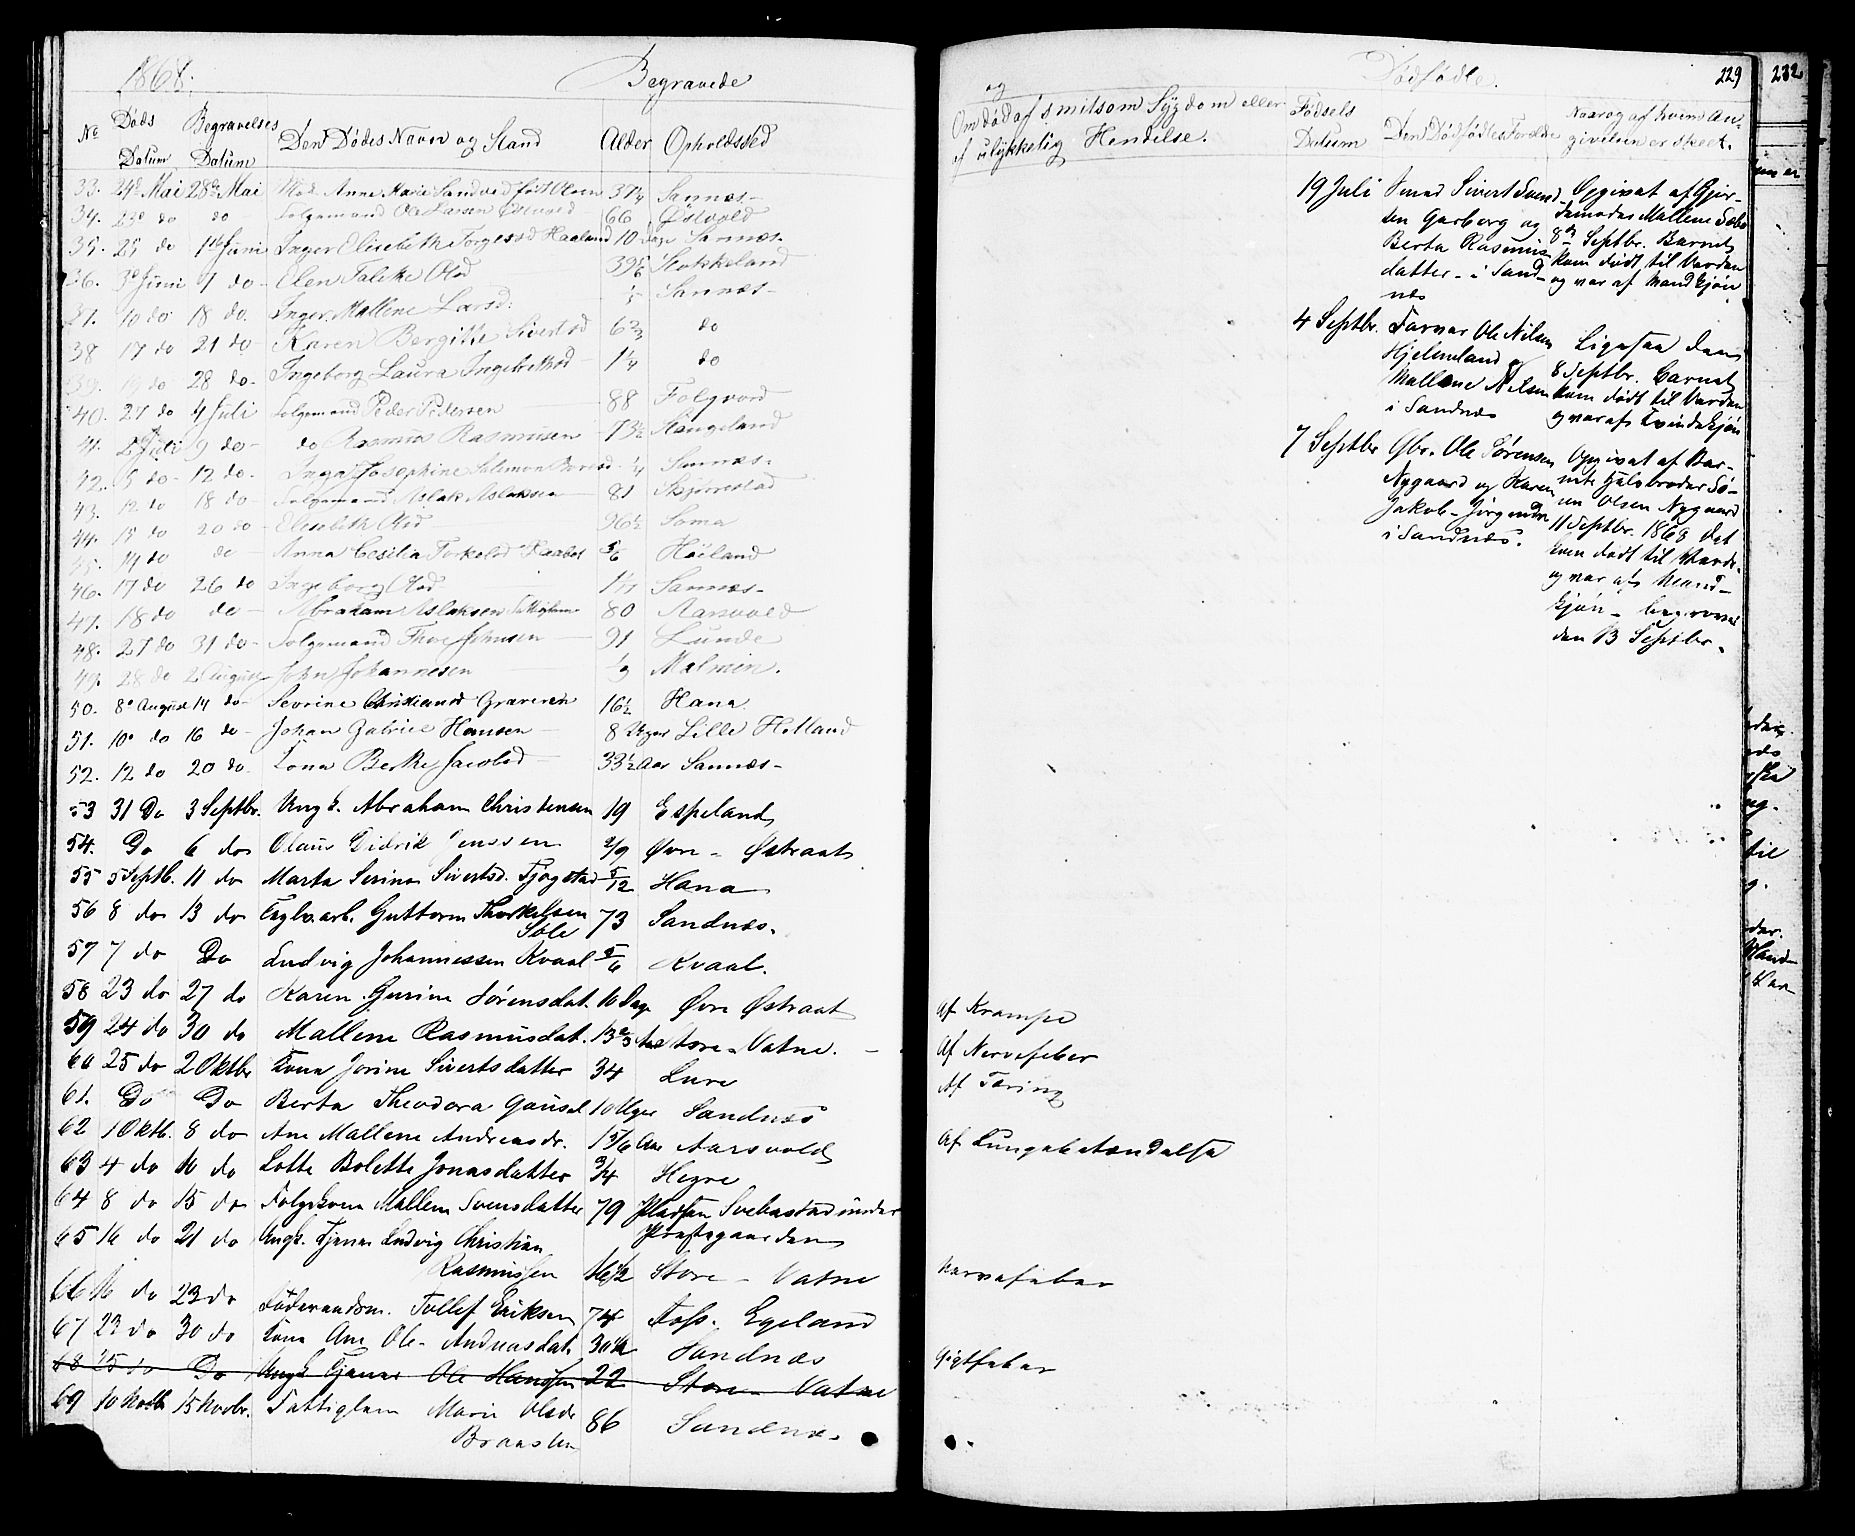 1868.
Begravede
No Døds Datum Begravelses Datum Den Dødes Navn og Stand Alder Opholdssted
33. 24de Mai 28de Mai Mad. Anne Marie Sandved født Olsen 37 1/4 Sannæs
34. 23de do do Folgemand Ole Larsen 66 Østvold
35. 25 do 1ste Juni Inger Elisabeth Torgersd Haaland 10 dage Sannæs
36. 3de Juni 9 do Elen Talike Olsd 39 5/6 Stokkeland
37. 10 do 18 do Inger Mallene Larsd. Sannæs
38 17 do 21 do Karen Bergitte Sivertsd 6 2/3 do
39. 19 do 28 do Ingeborg Laura Ingebretsd 1 1/4 do
40. 27 do 4 Juli Folgemand Peder Pedersen 88 Folgvord
41. Juli 9 do do Rasmus Rasmusen 73 1/2 Stangeland
42. 5 do 12 do Inga Josephine Salemonsend 1/4 Sannæs
43. 12 do 18 do Folgemand Aslak Aslaksen 81 Skjørrestad
44. 15 do 20 do Elisabeth Olsd 96 1/2 Soma
45. 14 do do Anna Cesilia Torkelsd 5/6 Høiland
46. 17 do 26 do Ingeborg Olsd Sannæs
47. 18 do do Abraham Aslaksen Fattiglem 80 Aarsvold
48. 27 do 31 do Folgemand Thore Johnsen 91 Lunde
49. 28 do 2 August John Johannesen 1/9 Malmin.
50. 8de August 14 do Sevrine Christiansd Graveren 16 1/2 Hana
51. 10de do 16 do Johan Gabriel Hansen 8 Uger Lille Hetland
52. 12 do 20 do Kona Berthe Jacobsd 33 1/2 Aar Sannæs
53 31 Do 3 Septbr. Ungk. Abraham Christensen 19 Espeland
54. Do 6 do Olaus Didrik Jenssen 2/9 Øvre Østraat
55 5 Septb. 11 do Marta Serina Sivertsd. Fjogstad 5/12 Hana
56 8 do 13 do Teglv.arb. Guttorm Thorkelsen Sole 73 Sandnæs.
57 7 do Do Ludvig Johannessen Kvaal 5/6 Kvaal.
58 23 do 27 do Karen Gurine Sørensdat. 10 Dage Øvre Østraat
59 24 do 30 do Mallene Rasmusdat. 13 2/3 Aar Store-Vatne.
60 25 do 2 Oktbr Kona Jorine Sivertsdatter 34 Lure
61. Do Do Berta Theodora Gausel 10 Uger Sandnæs
62 1 Oktb. 8 do Ane Mallene Andreasdr. 1 5/6 Aar Aarsvold
63 4 do 10 do Lotte Bolette Jonasdatter 3/4 Hegre
64 8 do 15 do Folgekone Mallene Svensdatter 79 Pladsen Svebastad under Præstegaarden
65 16 do 21 do Ungk. Tjener Ludvig Christian Rasmussen 16 1/2 Store-Vatne
66 16 do 23 do Føderaadsm. Tollef Eriksen 74 Foss-Egeland
67 23 do 30 do Kone Ane Ole-Andreasdat. 30 1/2 Sandnæs
68 25 do Do Ungk Tjener Ole Hanssen 22 Store-Vatne
69 10 Novb 15 Novbr. Fattiglem Marie Olsdr Braasten 86 Sandnæs
og
Dødfødte.
229
232
Om død af smitsom Sygdom eller
af ulykkelig Hendelse.
Fødsels Datum
Den Dødfødtes Forældre
Naar og af hvem An-
givelsen er skeet.
19 Juli
Smed Sivert Svend-
sen Garborg og
Berta Rasmus-
datter i Sand-
næs
Opgivet af Gjor-
demoder Mallene Sæbø
8de Septbr. Barnet
kom dødt til Verden
og var af Mandkjøn
4 Septbr.
Farver Ole Nilsen
Hjelmeland og
Mallene Nilsen
i Sandnæs
Ligesaa den
8 Septbr. Barnet
kom dødt til Verden
og var af Kvindekjøn
7 Septbr
Gbr. Ole Sørensen
Nygaard og Karen
Jakob-Jørgensdr
i Sandnæs.
Opgivet af Bar-
nets Halvbroder Sø-
ren Olsen Nygaard
11 Septbr. 1868 Det
kom dødt til Verden
og var af Mand-
kjøn - begravet
den 13 Septbr.
Af Krampe
Af Nervefeber
Af Tæring
Af Lungebetændelse
Nervefeber
Gigtfeber